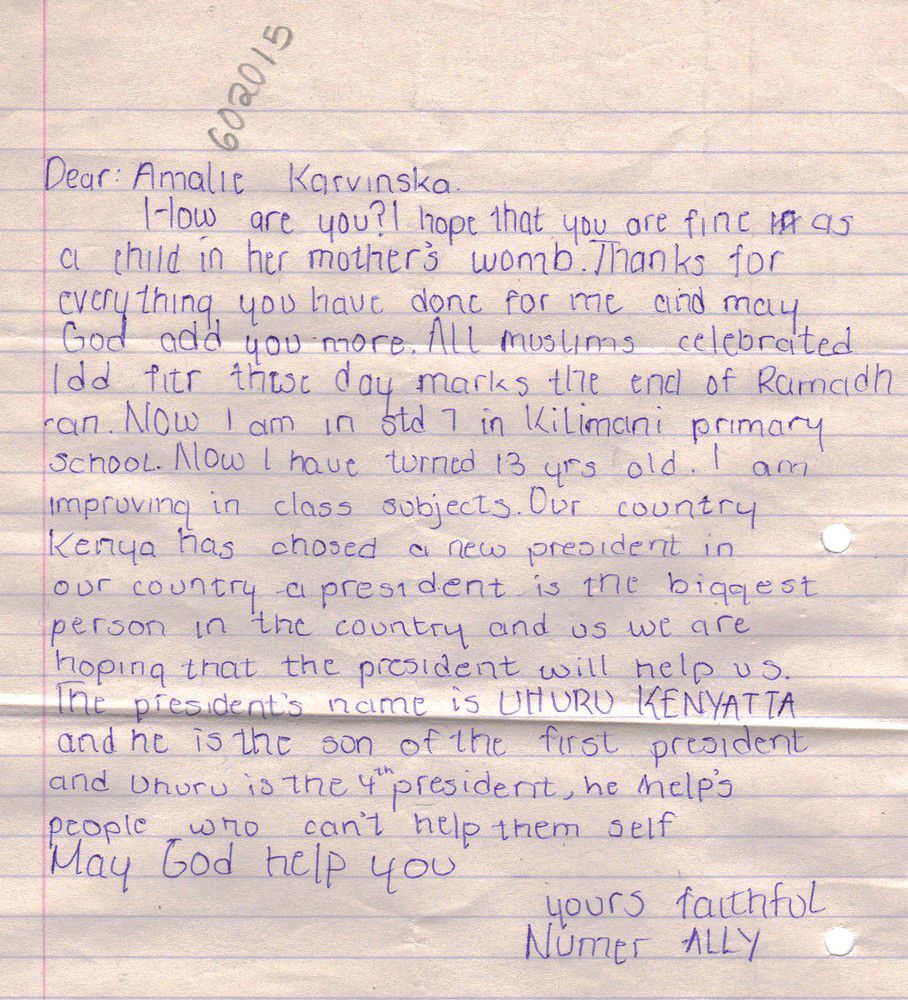 602015
Dear: Amalie Karvinska.
How are you? I hope that you are fine as
a child in her mother's womb. Thanks for
everything you have done for me and may
God add you more. All muslims celebrated
Idd fitr these day marks the end of Ramadh
-an. Now I am in std 7 in Kilimani primary
school. Now I have turned 13 yrs old. I am
improving in class subjects. Our country
Kenya has chosed a new president in
our country a president is the biggest
person in the country and us we are
hoping that the president will help us.
The president's name is UHURU KENYATTA
and he is the son of the first president
and Uhuru is the 4th president, he help's
people who can't help them self
May God help you
yours faithful
Numer ALLY